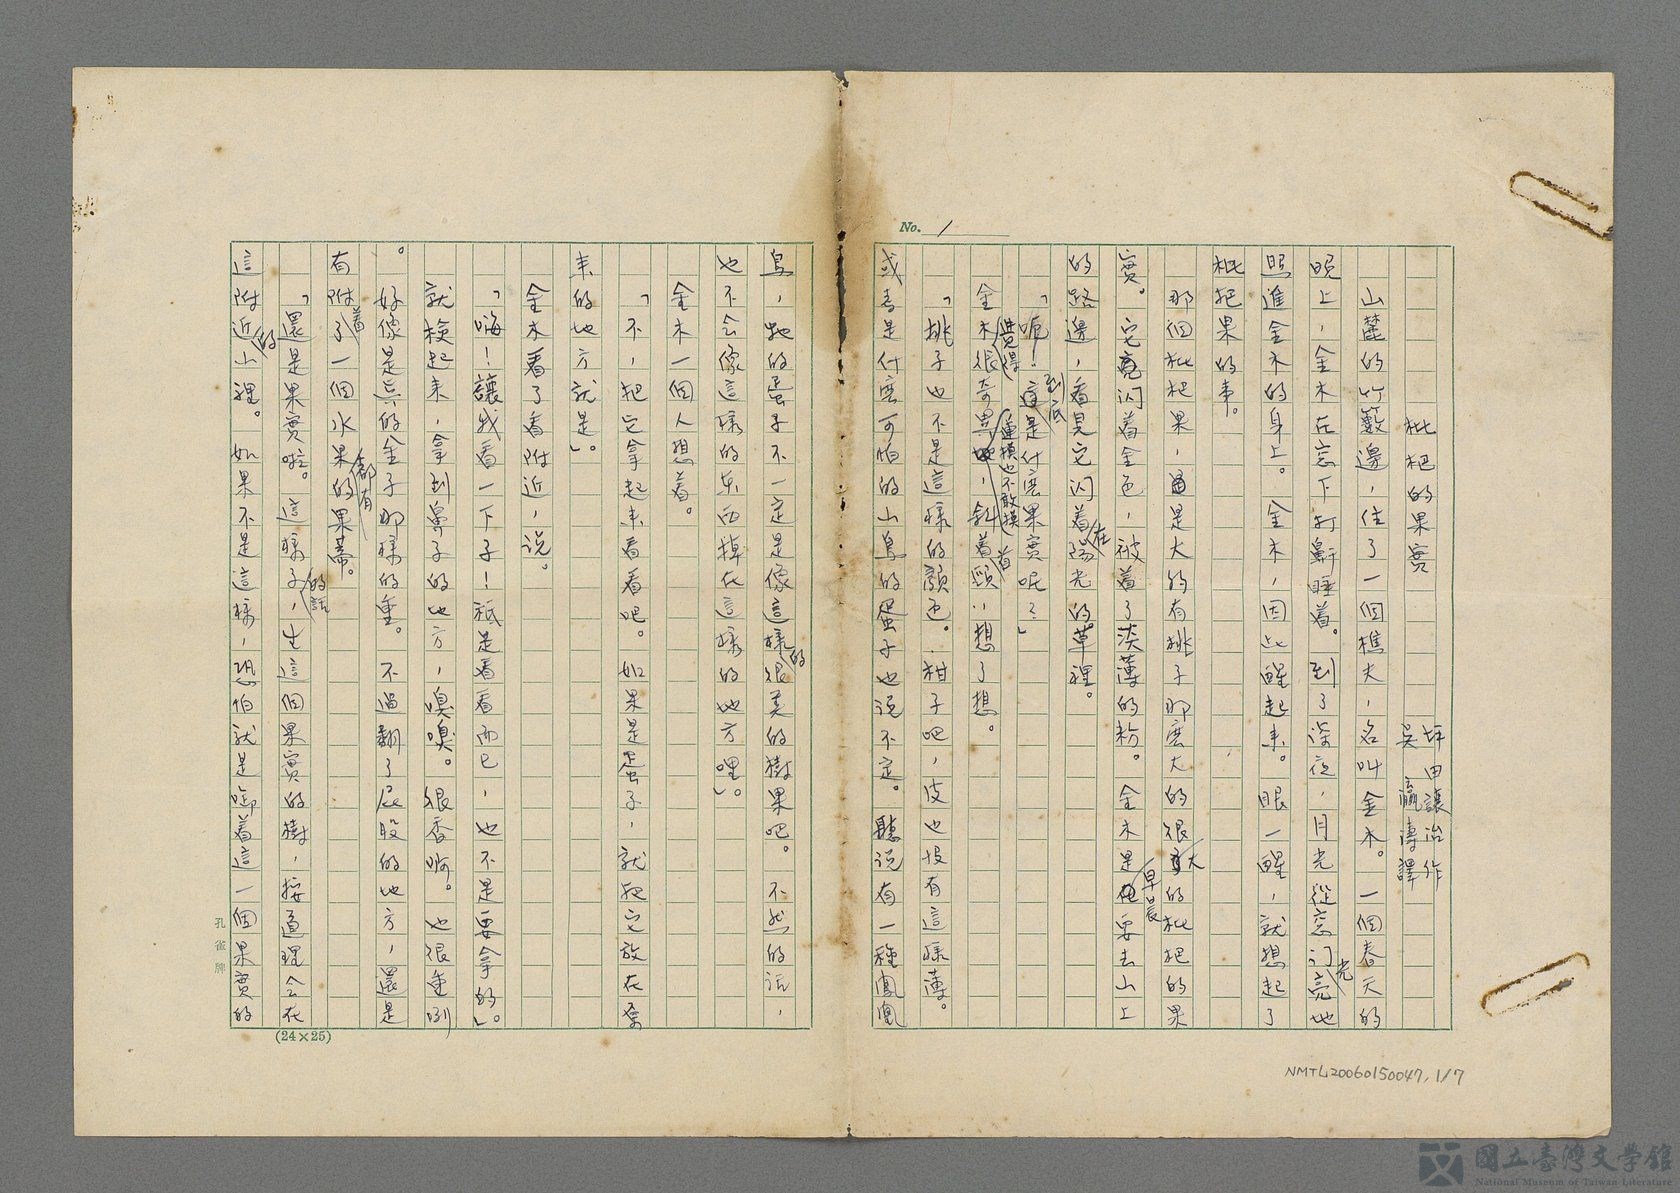 No. 1
枇杷的果實
坪田讓治作
吳瀛濤譯
山麓的竹籔邊，住了一個樵夫，名叫金木。一個春天的
晚上，金木在窓下打鼾睡着。到了深夜，月光從窓门亮光地
照進金木的身上。金木，因此醒起来。眼一醒，就想起了
枇把果的事。
那個枇杷果，是大约有桃子那麽大的很大的枇杷的果
實。它闪着金色，被着了淡薄的粉。金木是早晨要去山上
的路邊，看見它闪着在陽光的草裡。
「呃！這到底是什麽果實呢？」
金木覺得很奇異，摸也不敢摸，斜着頸首，想了想。
「桃子也不是這樣的顏色。柑子吧，皮也没有這樣薄。
或者是什麽可怕的山鳥的蛋子也说不定。聽说有一種鳳凰
鳥，牠的蛋子不一定是像這樣的很美的樹果吧。不然的话，
也不会像這樣的东西掉在這樣的地方哩」。
金木一個人想着。
「不，把它拿起来看看吧。如果是蛋子，就把它放在原
来的地方就是」。
金木看了看附近，说。
「嗨！讓我看一下子！祇是看看而已，也不是要拿的」。
就檢起来，拿到鼻子的地方，嗅嗅。很香啊。也很重咧
。好像是真的金子那樣的重。不過翻了屁股的地方，還是
有附着了一個水果的都有果蒂。
「還是果實啦。這樣子的話，生這個果實的樹，按道理会在
這附近的山裡。如果不是這樣，恐怕就是啣着這一個果實的
孔雀牌
(24×25)
NMTL20060150047, 1/7
國立臺灣文學館
National Museum of Taiwan Literature